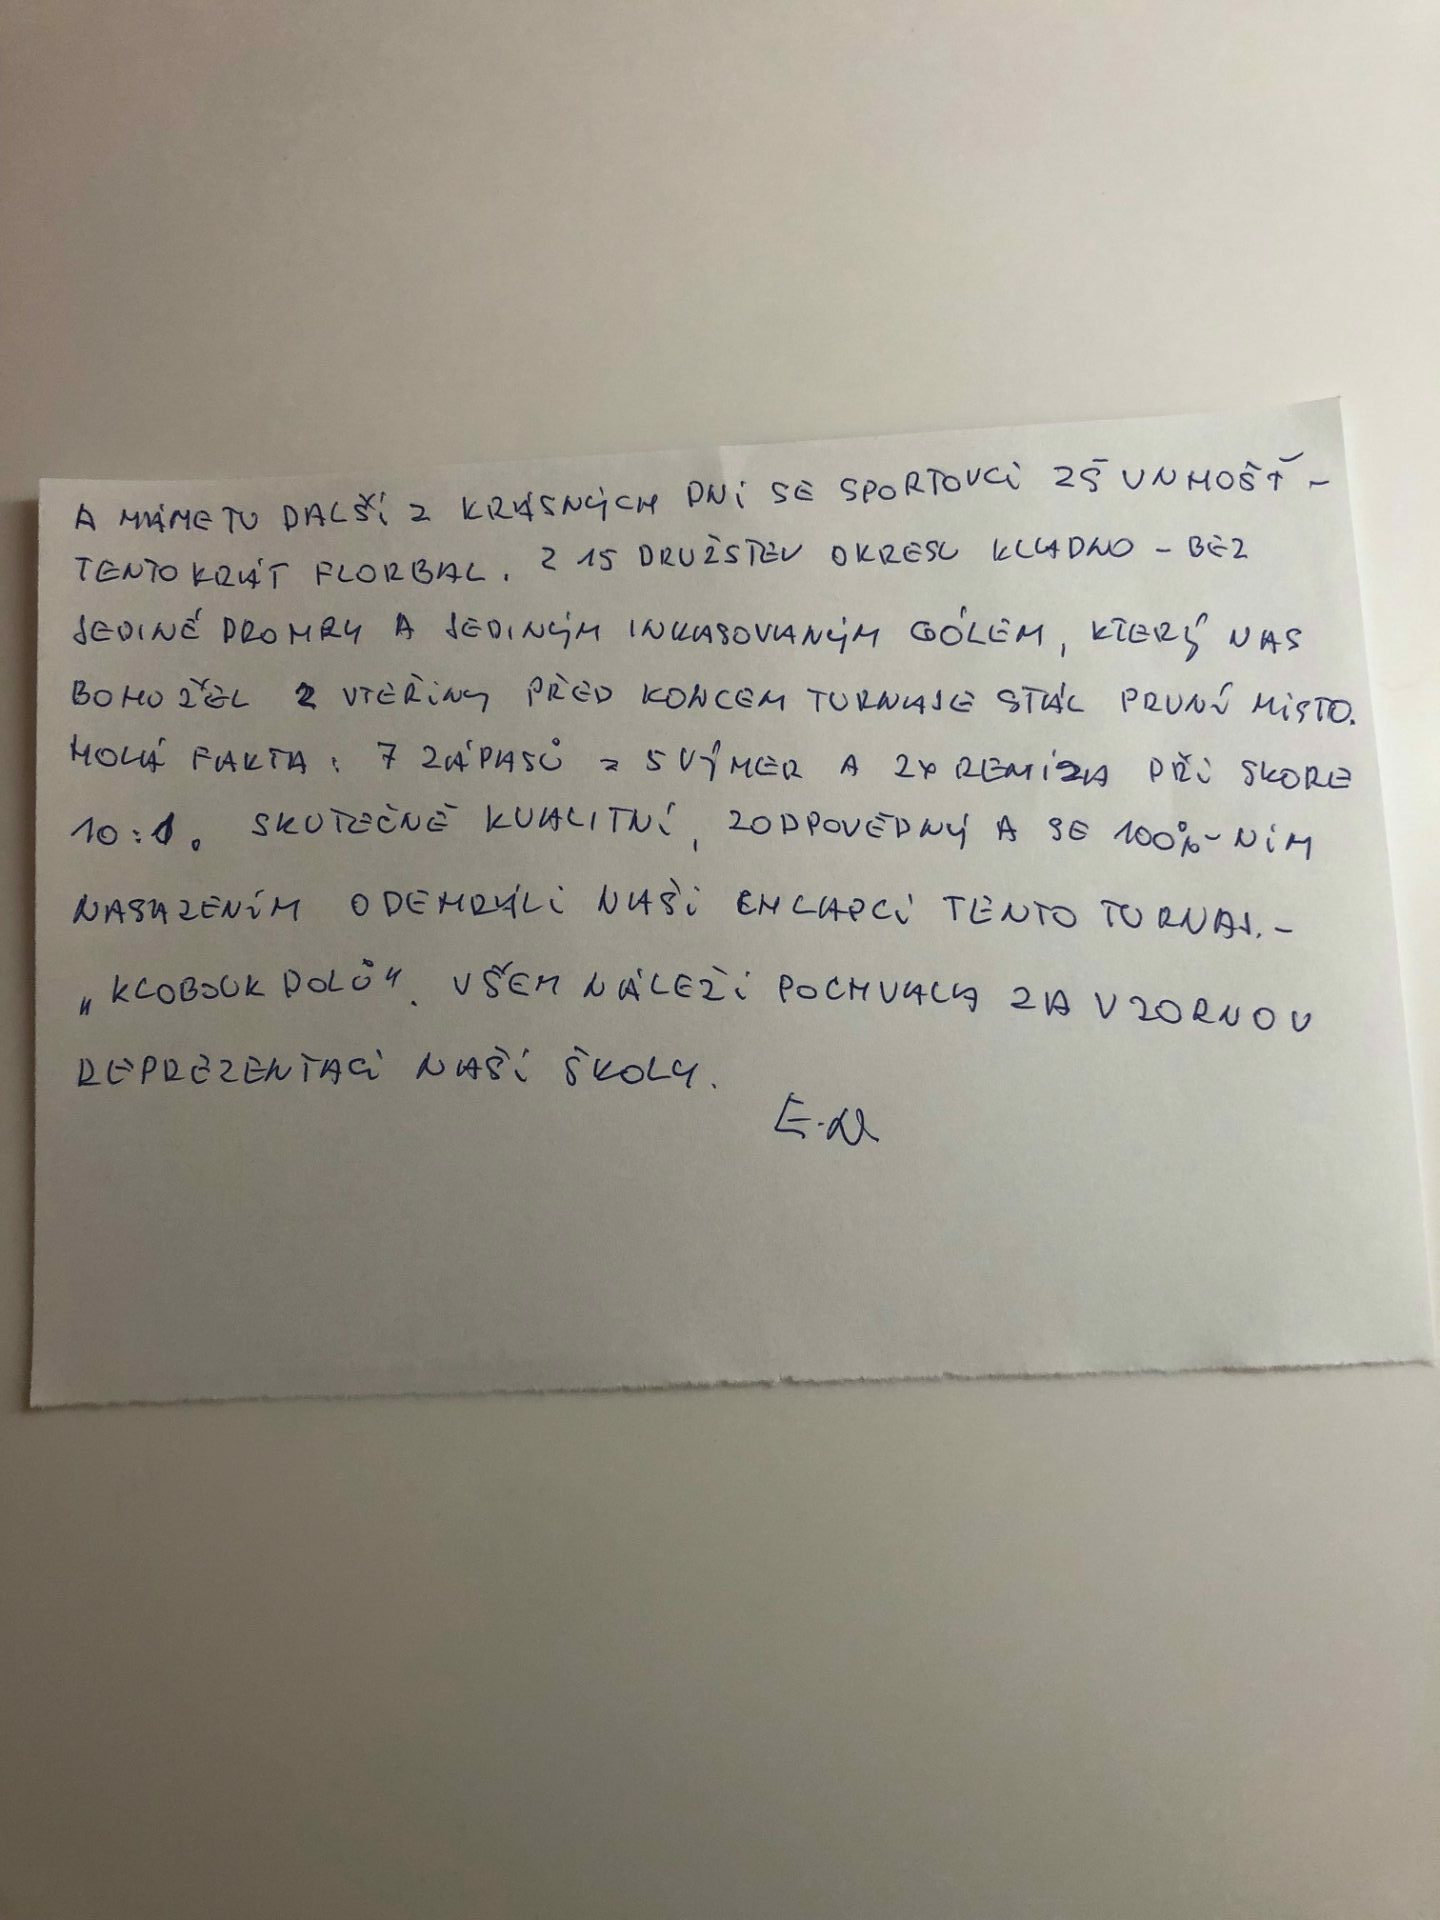 A MÁME TU DALŠÍ Z KRÁSNÝCH DNÍ SE SPORTOVCI ZŠ UNHOŠŤ -
TENTOKRÁT FLORBAL. Z 15 DRUŽSTEV OKRESU KLADNO - BEZ
JEDINÉ PROHRY A JEDINÝM INKASOVANÝM GÓLEM, KTERÝ NAS
BOHUŽEL 2 VTEŘINY PŘED KONCEM TURNAJE STÁL PRVNÍ MÍSTO.
HOLÁ FAKTA: 7 ZÁPASŮ = 5 VÝHER A 2X REMÍZA PŘI SKORE
10:1. SKUTEČNĚ KVALITNÍ, ZODPOVĚDNÝ A SE 100%-NÍM
NASAZENÍM ODEHRÁLI NAŠI CHLAPCI TENTO TURNAJ. -
„KLOBOUK DOLŮ". VŠEM NÁLEŽÍ POCHVALA ZA VZORNOU
REPREZENTACI NAŠÍ ŠKOLY.